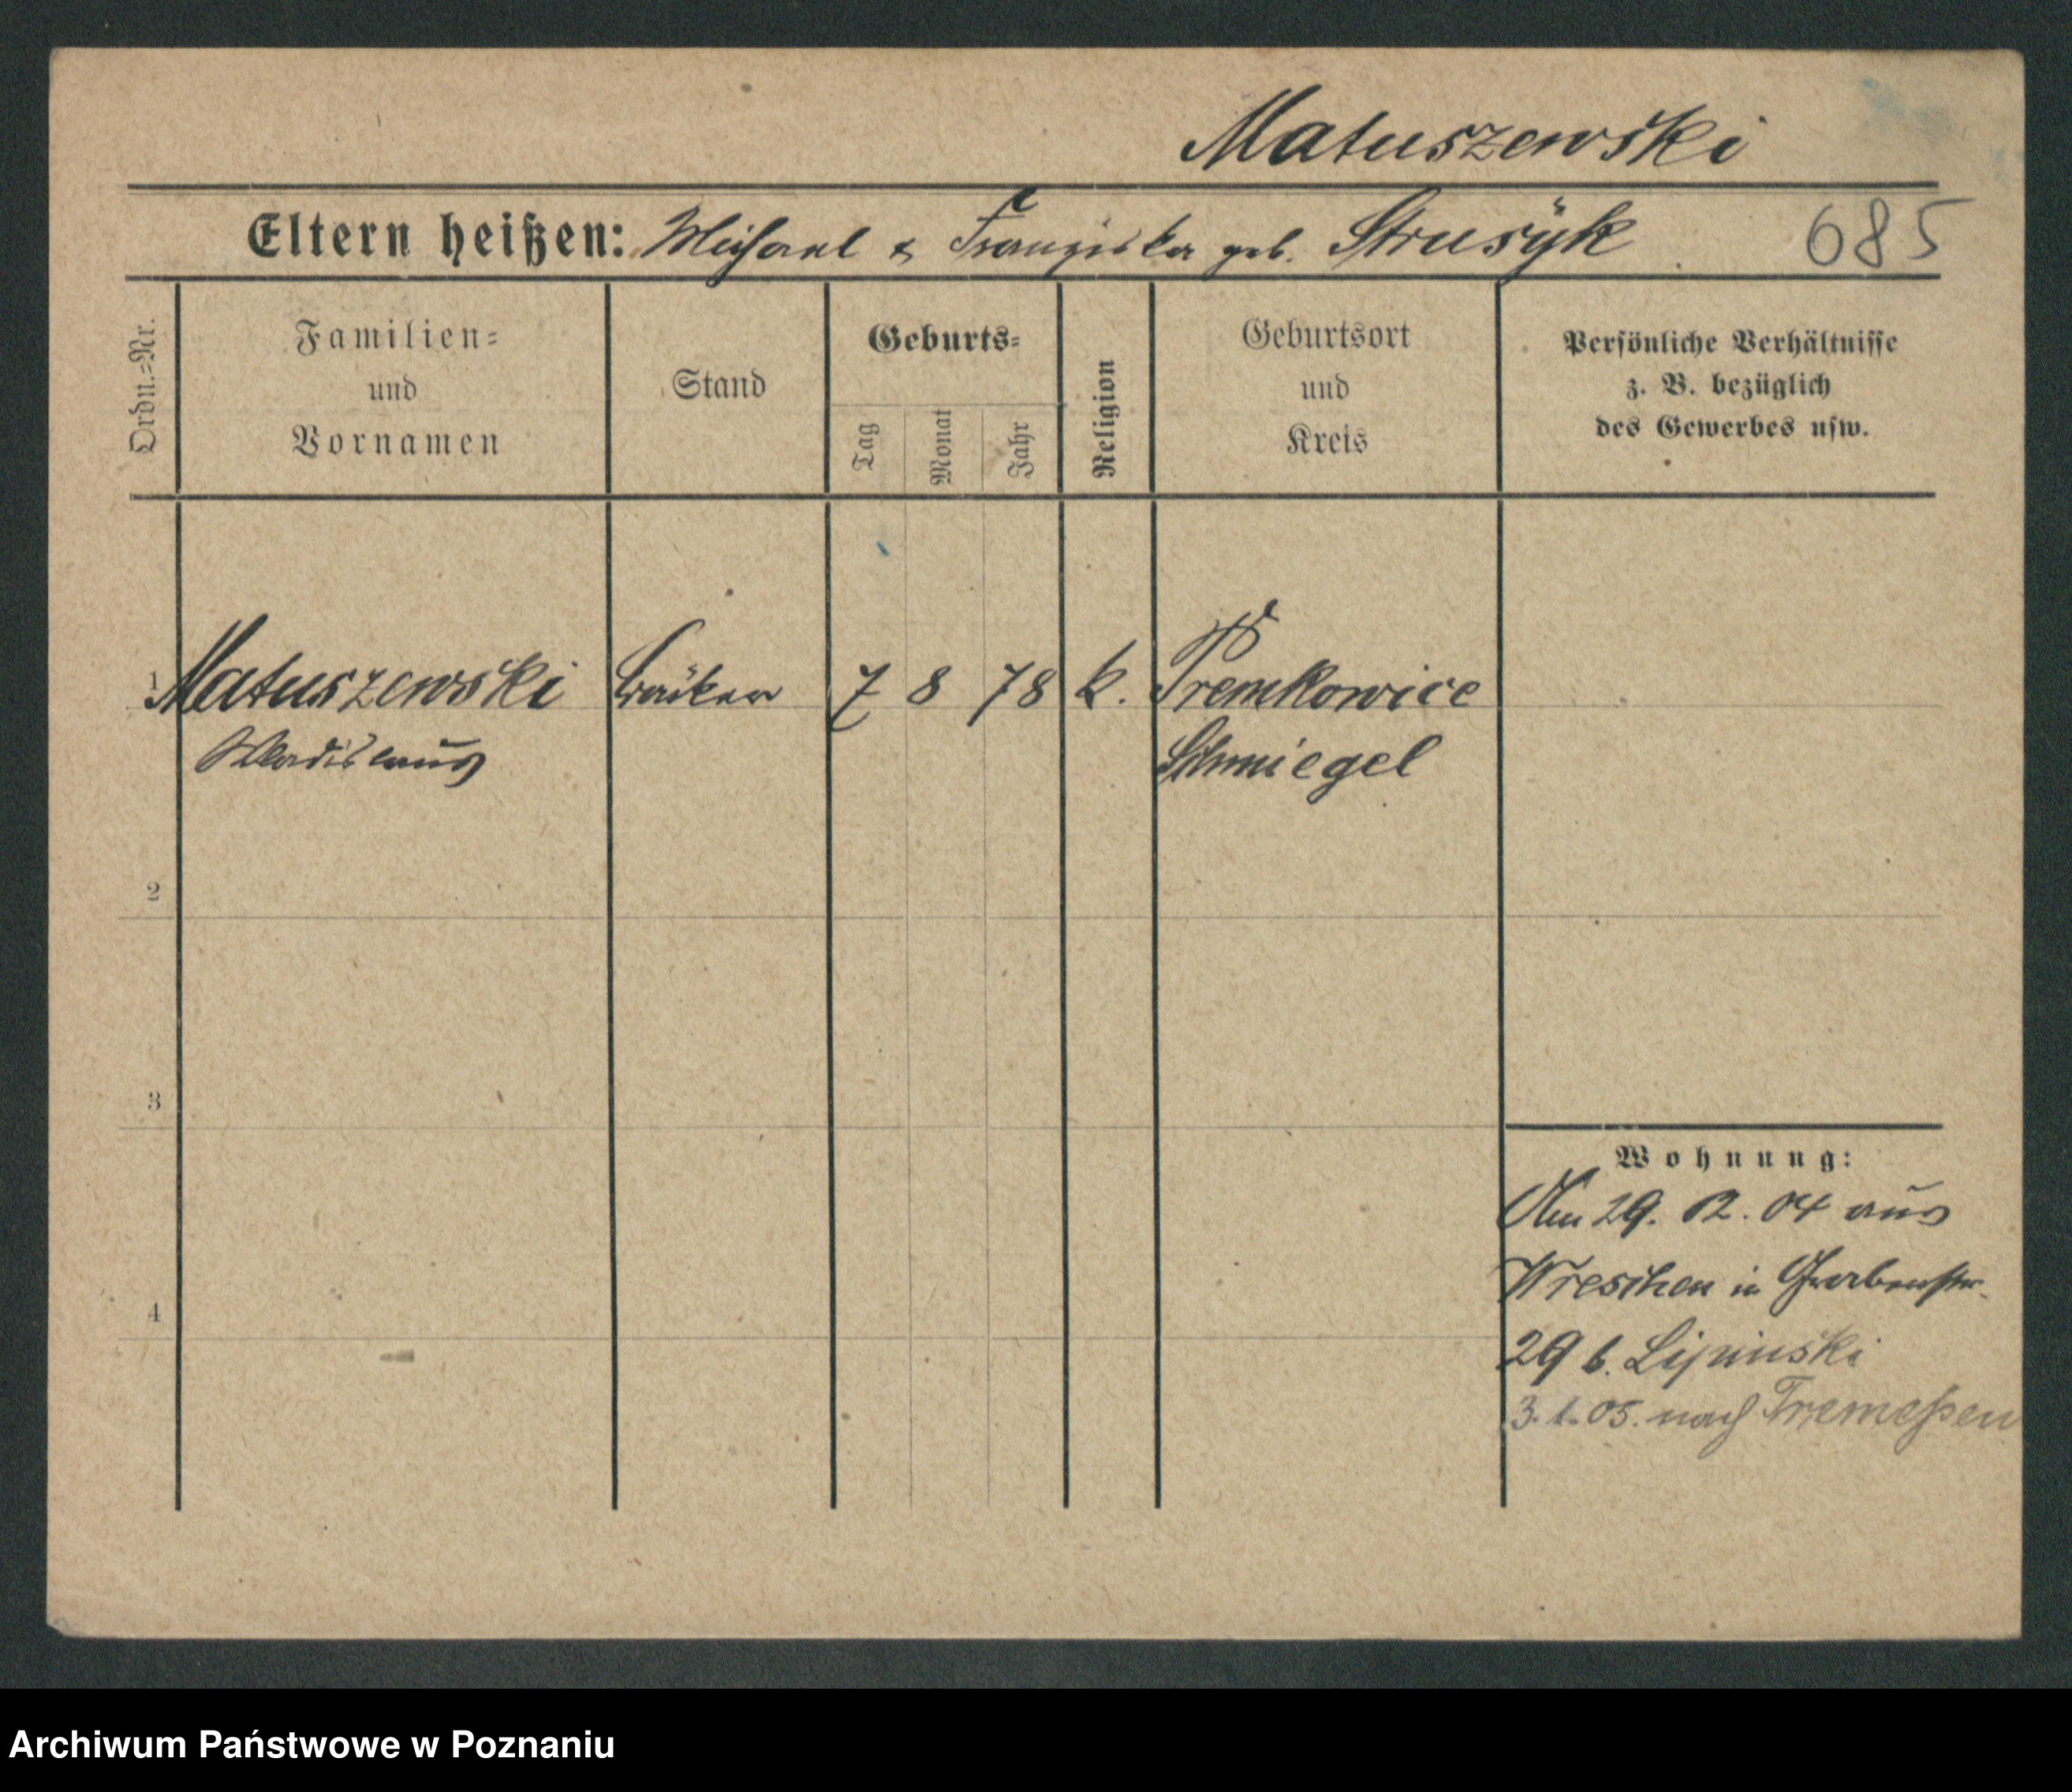 Matuszewski
Eltern heißen: Michael & Franziska geb. Strusÿk 685
Ordn.=Nr.
Familien=
und
Vornamen
Stand
Geburts=
Tag
Monat
Jahr
Religion
Geburtsort
und
Kreis
Persönliche Verhältnisse
z. B. bezüglich
des Gewerbes usw.
1 Matuszewski Bäcker 7 8 78 k. Premkowice
Wladislaus Schmiegel
2
3
4
Wohnung:
Am 29. 12. 04 aus
Wreschen in Grabenstr.
29 b. Lipinski
3. 1. 05. nach Tremeßen
Archiwum Państwowe w Poznaniu